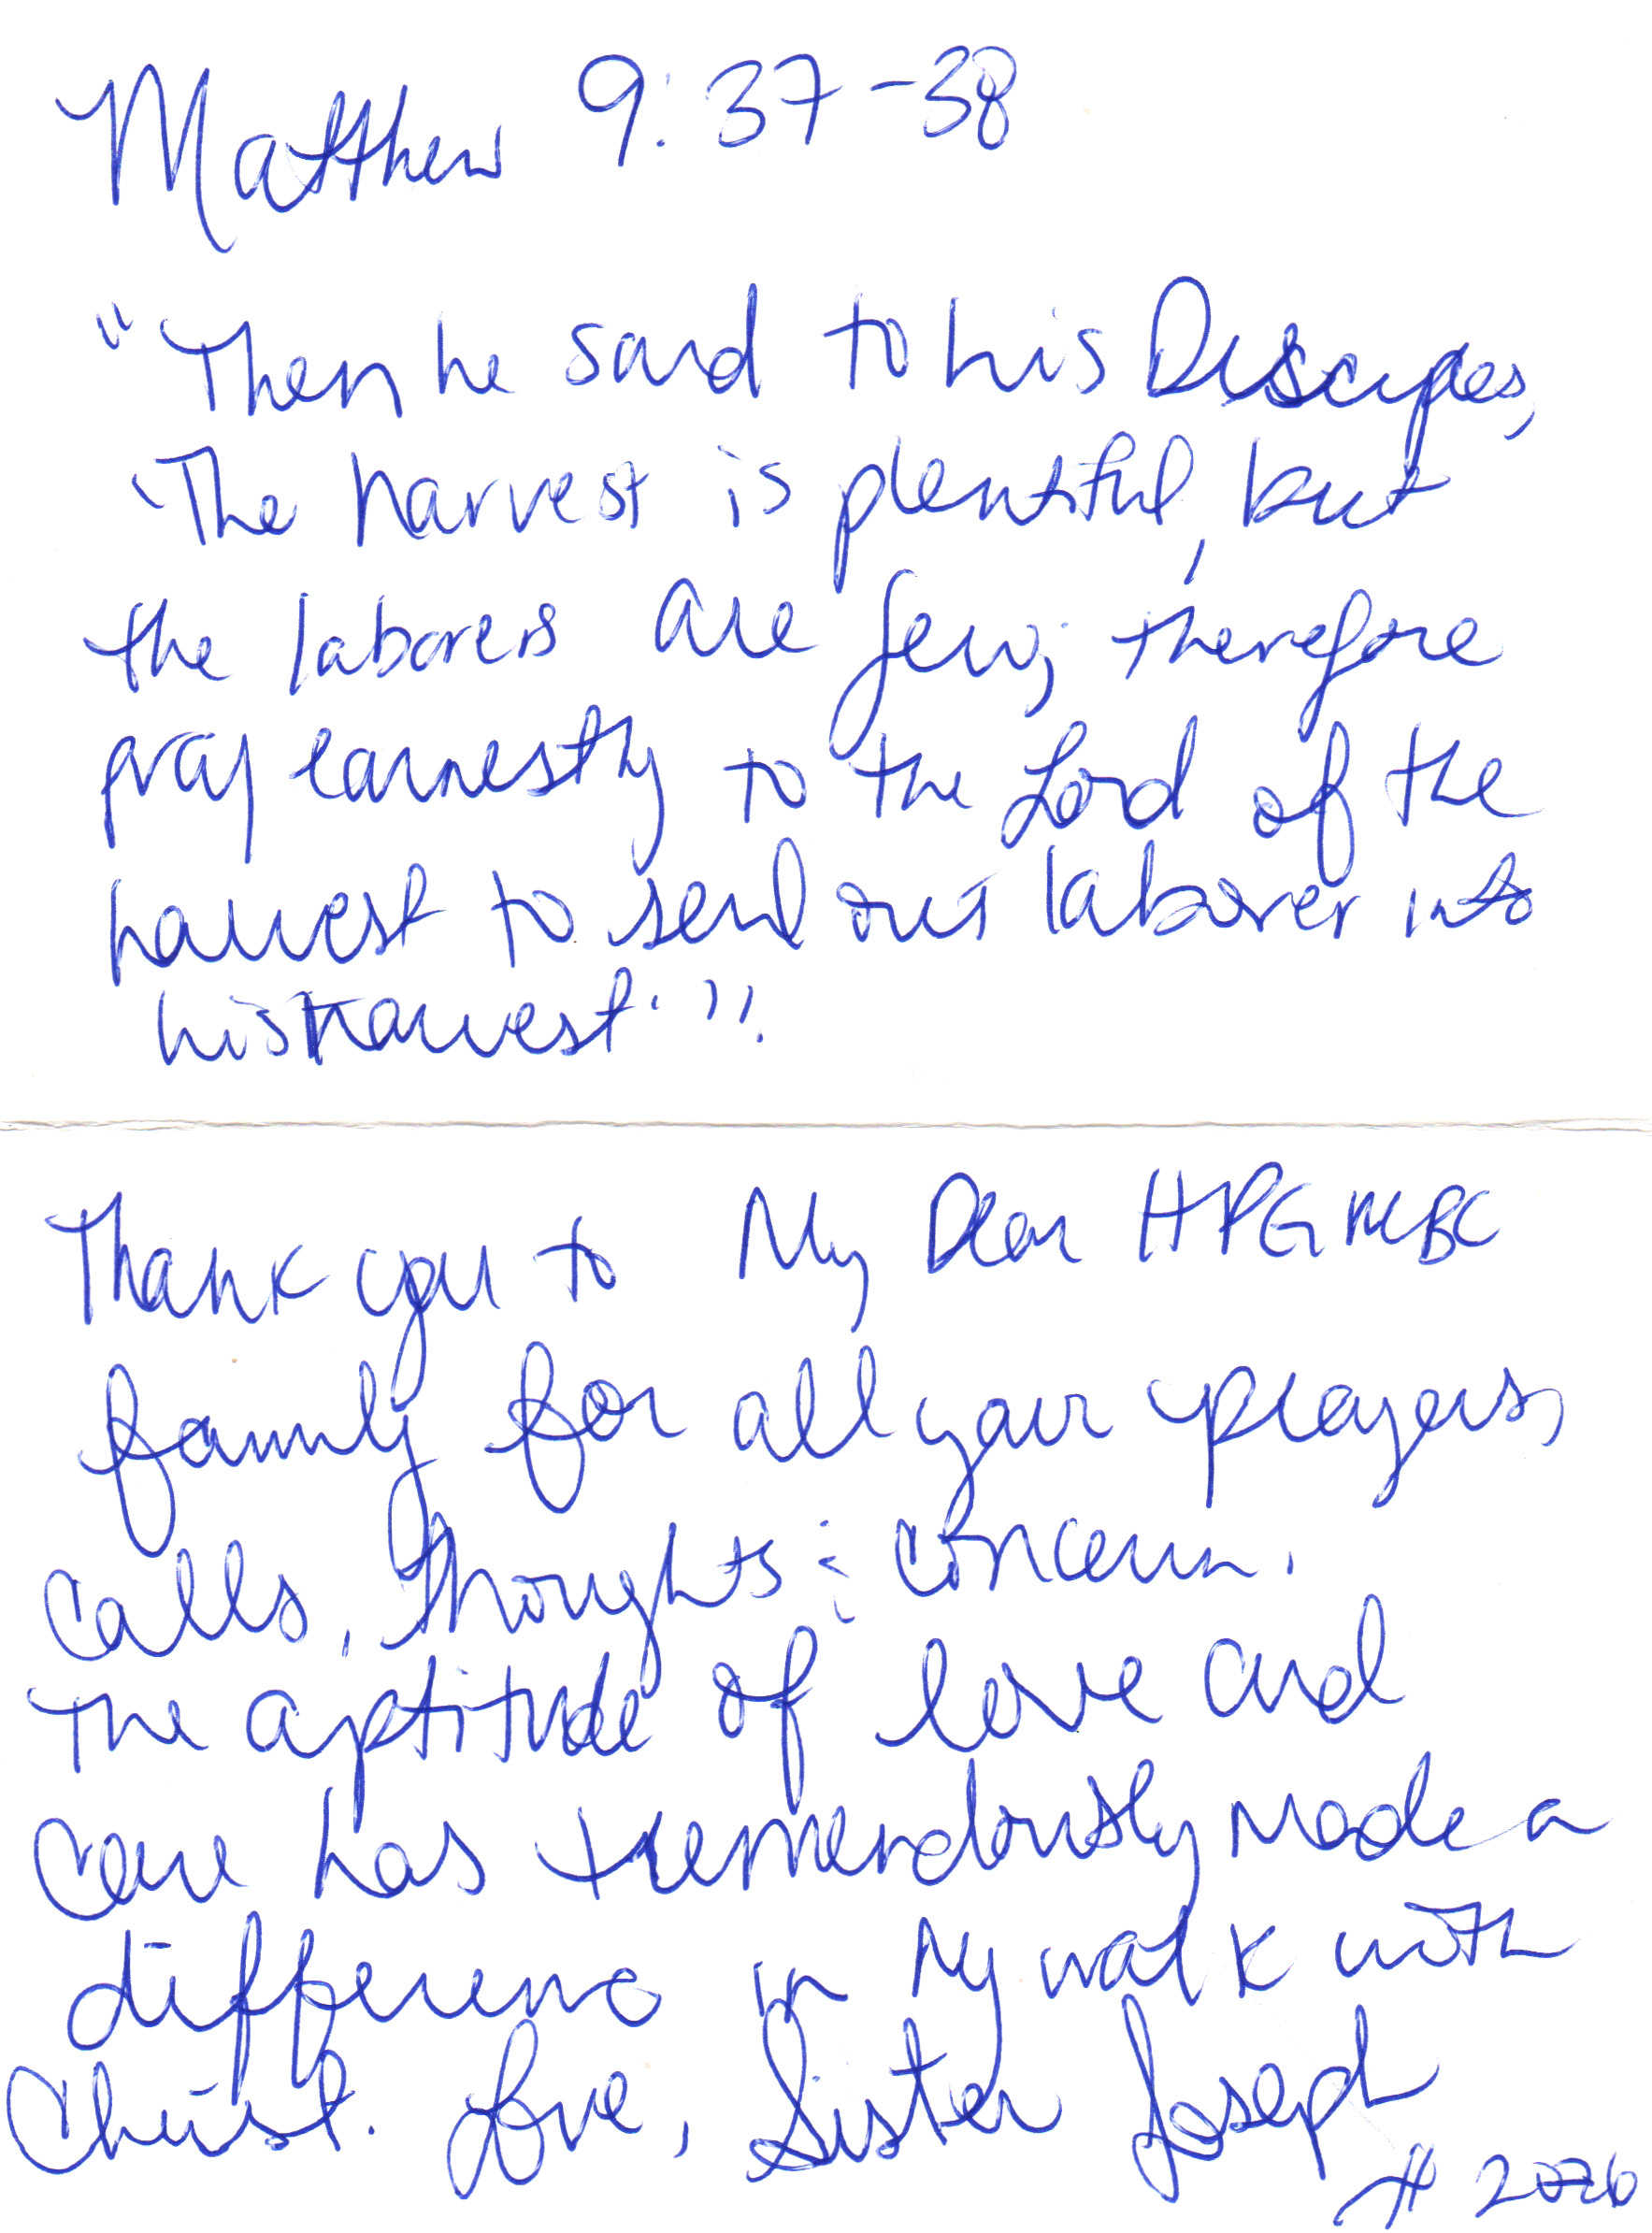 Matthew 9:37-38
"Then he said to his Disciples,
'The harvest is plentiful, but
the laborers are few; therefore
pray earnestly to the Lord of the
harvest to send out laborer into
his harvest.'".
Thank you to My Dear HPGMBC
family for all your prayers,
calls, thoughts & concern.
The aptitude of love and
care has tremendously made a
difference in My walk with
Christ. Love, Sister Joseph
# 2026